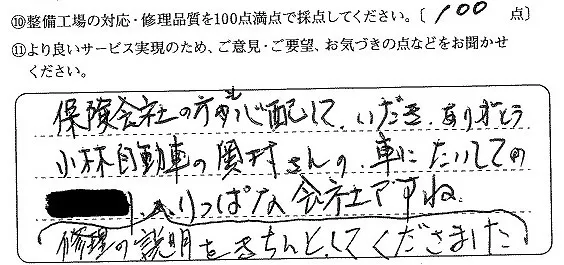 ⑩整備工場の対応・修理品質を100点満点で採点してください。〔 100 点〕
⑪より良いサービス実現のため、ご意見・ご要望、お気づきの点などをお聞かせ
ください。
保険会社の方も心配して、いただき、ありがとう
小林自動車の奥村さんの、車にたいしての
りっぱな会社ですね
修理の説明をきちんとしてくださました